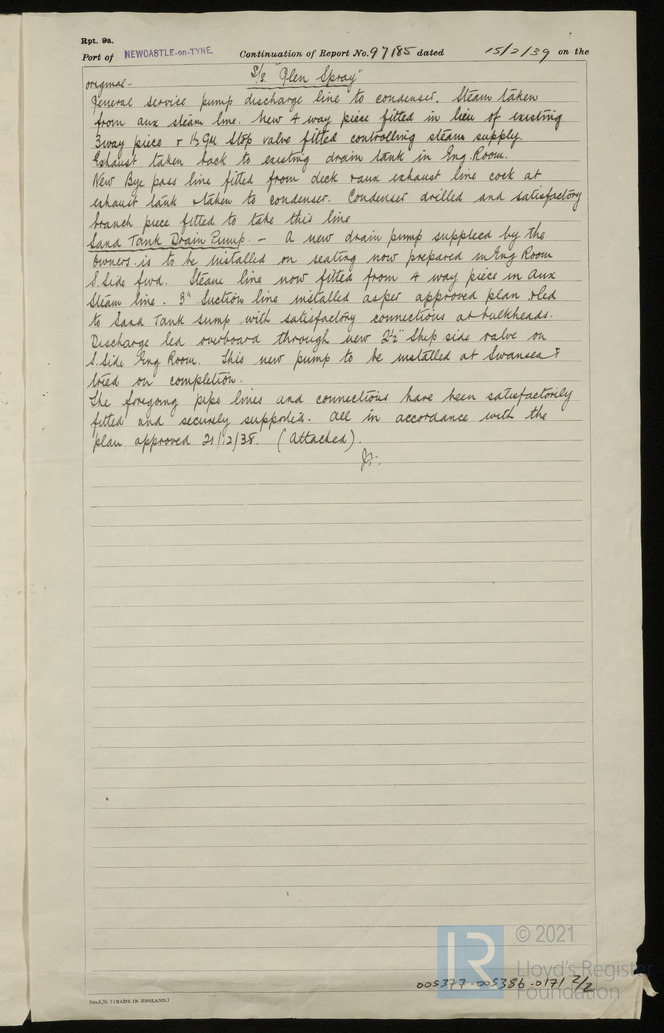 Rpt. 9a.
Port of NEWCASTLE-on-TYNE. Continuation of Report No. 97185 dated 15/2/39 on the
S/S "Glen Spray"
original -
General service pump discharge line to condenser. Steam taken
from aux steam line. New 4 way piece fitted in lieu of existing
3 way piece + 1½ GM Stop valve fitted controlling steam supply.
Exhaust taken back to existing drain tank in Eng. Room.
New Bye pass line fitted from deck + aux exhaust line cock at
exhaust tank + taken to condenser. Condenser drilled and satisfactory
branch piece fitted to take this line
Sand Tank Drain Pump. - A new drain pump supplied by the
Owners is to be installed on seating now prepared in Eng Room
S. Side fwd. Steam line now fitted from 4 way piece in aux
Steam line. 3" Suction line installed as per approved plan + led
to Sand Tank sump with satisfactory connections at bulkheads.
Discharge led overboard through new 2½" Ship side valve on
S. Side Eng Room. This new pump to be installed at Swansea +
tried on completion.
The foregoing pipe lines and connections have been satisfactorily
fitted and securely supported. All in accordance with the
plan approved 21/12/38. (Attached).
© 2021
LR
Lloyd's Register
Foundation
005377-005386-0171 2/2
(MADE IN ENGLAND.)